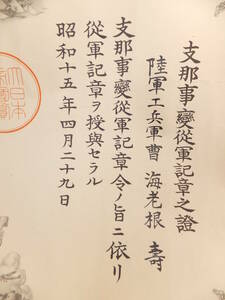 支那事變從軍記章之證
陸軍工兵軍曹 海老根 壽
支那事變從軍記章令ノ旨ニ依リ
從軍記章ヲ授與セラル
昭和十五年四月二十九日
大日本
帝國